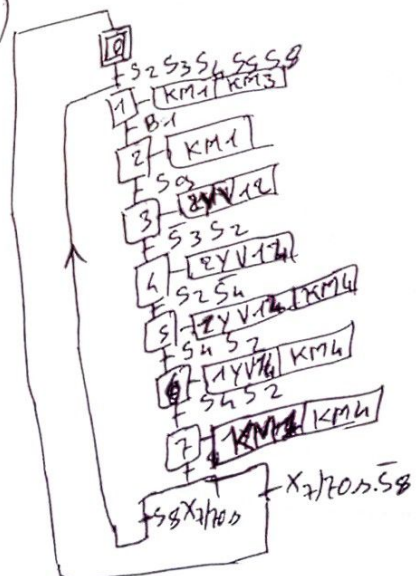 0
S2 S3 S4 S5 S8
1 KM1 KM3
B1
2 KM1
S9
3 2YV12
S̅3 S2
4 2YV14
S2 S̅4
5 2YV14 KM4
S4 S2
6 1YV14 KM4
S4 S2
7 KM4
S8 X7/70s X7/70s.S̅8